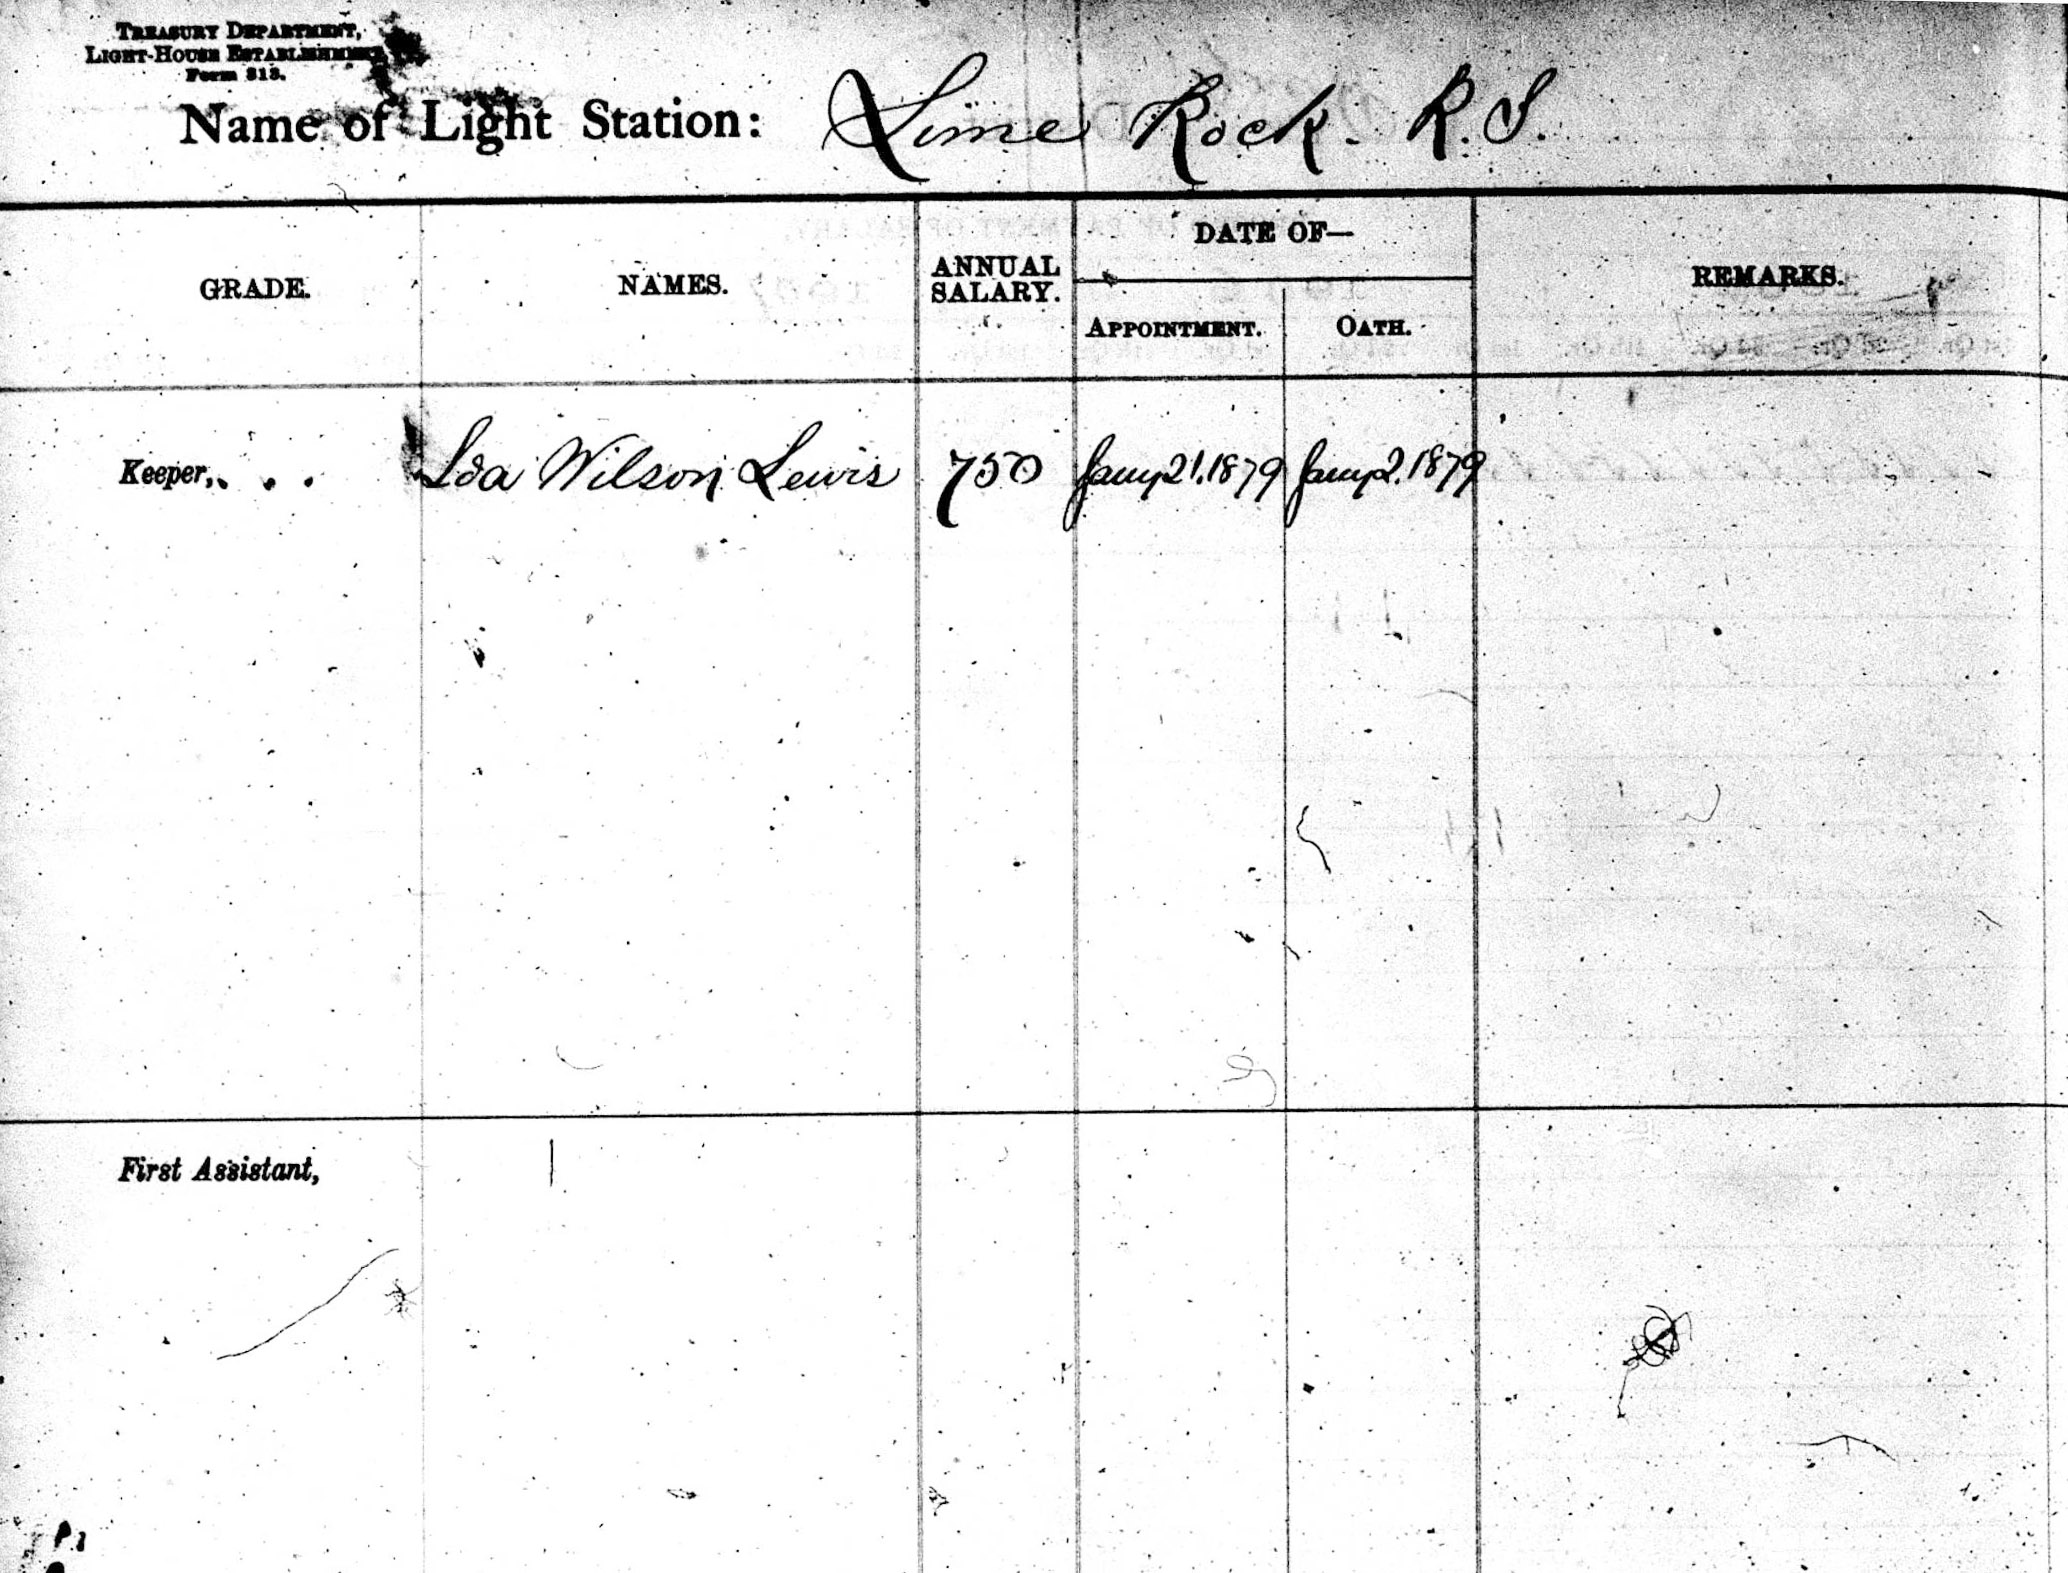 TREASURY DEPARTMENT,
LIGHT-HOUSE ESTABLISHMENT
Form 313.
Name of Light Station: Lime Rock. R.I.
GRADE. NAMES. ANNUAL SALARY. DATE OF— REMARKS.
APPOINTMENT. OATH.
Keeper, . . Ida Wilson Lewis 750 Jany 21.1879 Jany 2.1879
First Assistant,